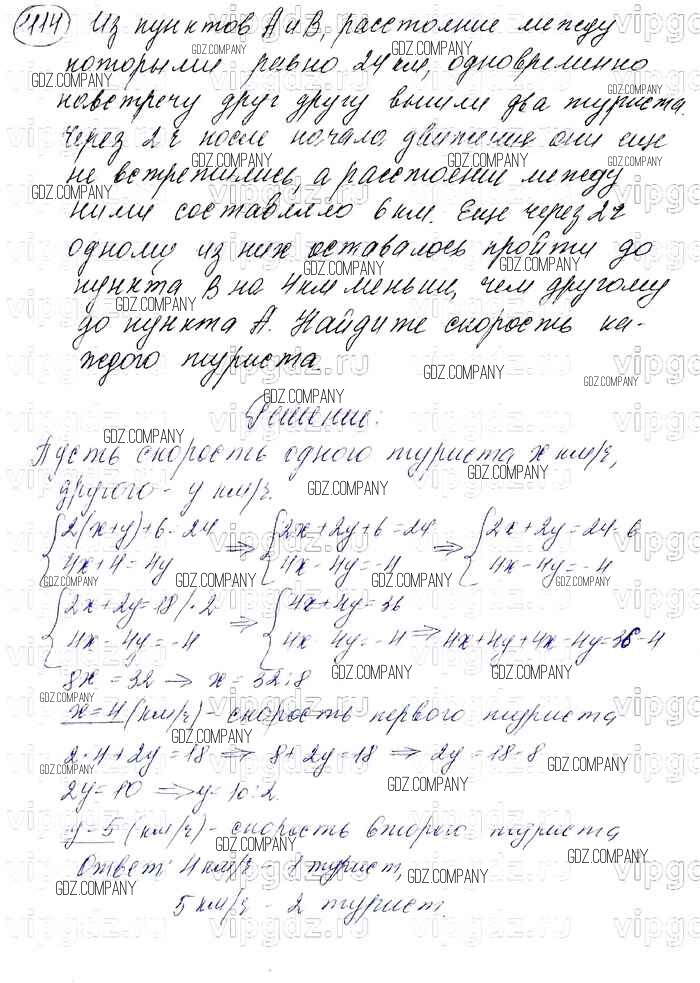 1114 Из пунктов А и В, расстояние между
которыми равно 24 км, одновременно
навстречу друг другу вышли два туриста.
Через 2 ч после начала движения они еще
не встретились, а расстояние между
ними составляло 6 км. Еще через 2 ч
одному из них оставалось пройти до
пункта В на 4 км меньше, чем другому
до пункта А. Найдите скорость ка-
ждого туриста.
Решение:
Пусть скорость одного туриста х км/ч,
другого - у км/ч.
{2(x+y)+6=24 ⇒ {2x+2y+6=24 ⇒ {2x+2y=24-6
{4x+4=4y {4x-4y=-4 {4x-4y=-4
{2x+2y=18 |·2 ⇒ {4x+4y=36
{4x-4y=-4 {4x-4y=-4 ⇒ 4x+4y+4x-4y=36-4
8x=32 ⇒ x=32:8
x=4 (км/ч) - скорость первого туриста
2·4+2y=18 ⇒ 8+2y=18 ⇒ 2y=18-8
2y=10 ⇒ y=10:2
y=5 (км/ч) - скорость второго туриста
Ответ: 4 км/ч - 1 турист,
5 км/ч - 2 турист.
GDZ.COMPANY
vipgdz.ru